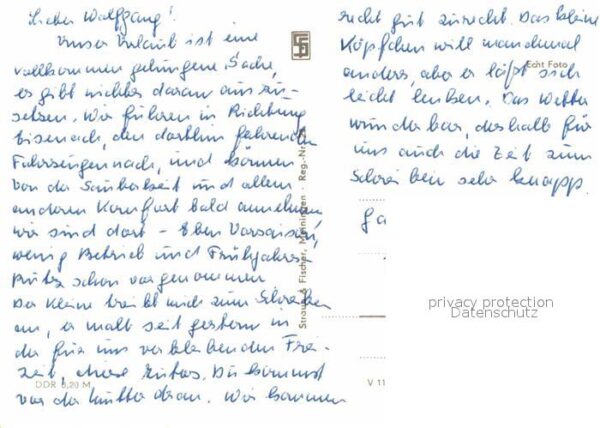 Lieber Wolfgang!
Unser Urlaub ist eine
vollkommen gelungene Sache,
es gibt nichts daran auszu-
setzen. Wir fuhren in Richtung
Eisenach, den dorthin fahrenden
Fahrzeugen nach, und können
von der Sauberkeit und allem
anderen Komfort bald annehmen
wir sind dort - Eben Vorsaison,
wenig Betrieb und Frühjahrs-
putz schon vorgenommen.
Der Kleine treibt mich zum Schreiben
an, er malt seit gestern in
der für uns verbleibenden Frei-
zeit, . Da kommst
vor der Mutter dran. Wir kommen
recht gut zurecht. Das kleine
Köpfchen will manchmal
anderes, aber er läßt sich
leicht lenken. Das Wetter
wunderbar, deshalb für
uns auch die Zeit zum
Schreiben sehr knapp.
Echt Foto
Straub & Fischer, Meiningen · Reg.-Nr.
DDR 0,20 M
V 11
privacy protection
Datenschutz